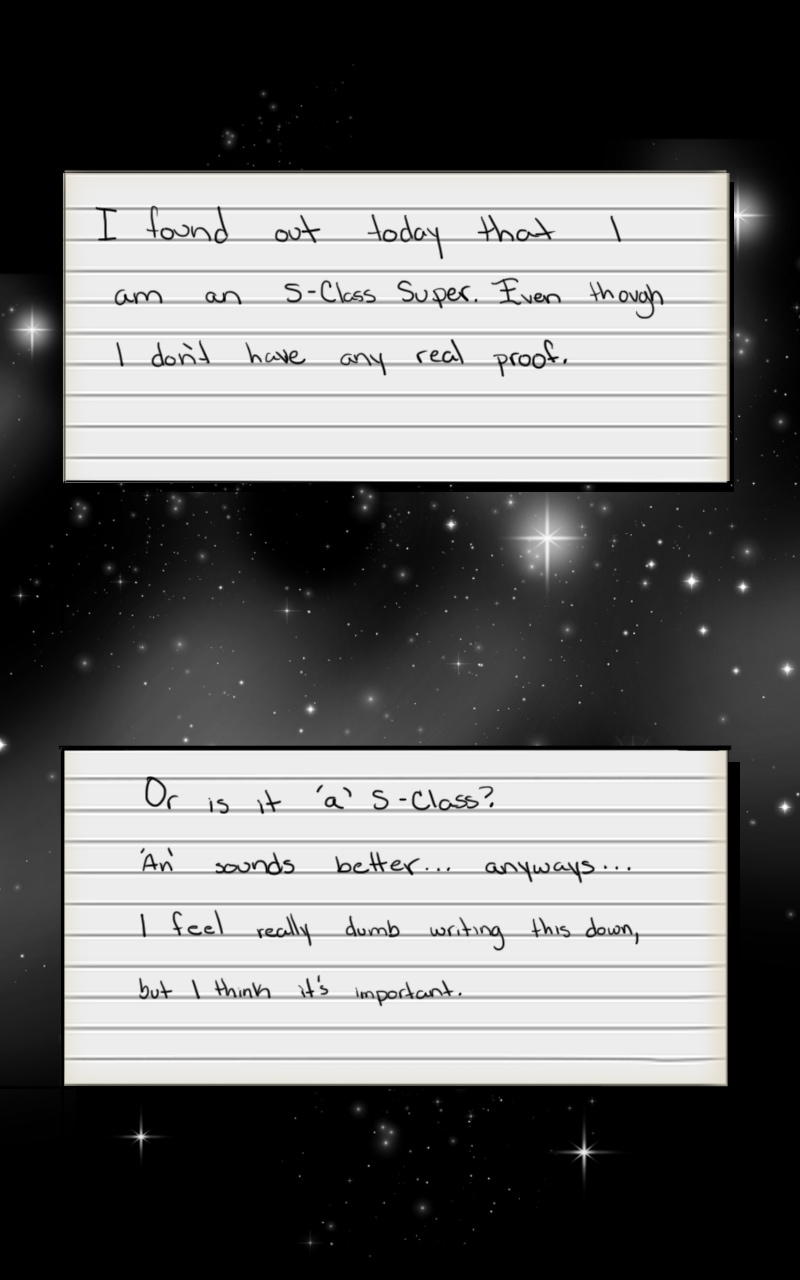 I found out today that I
am an S-Class Super. Even though
I don't have any real proof.
Or is it 'a' S-Class?
'An' sounds better... anyways...
I feel really dumb writing this down,
but I think it's important.